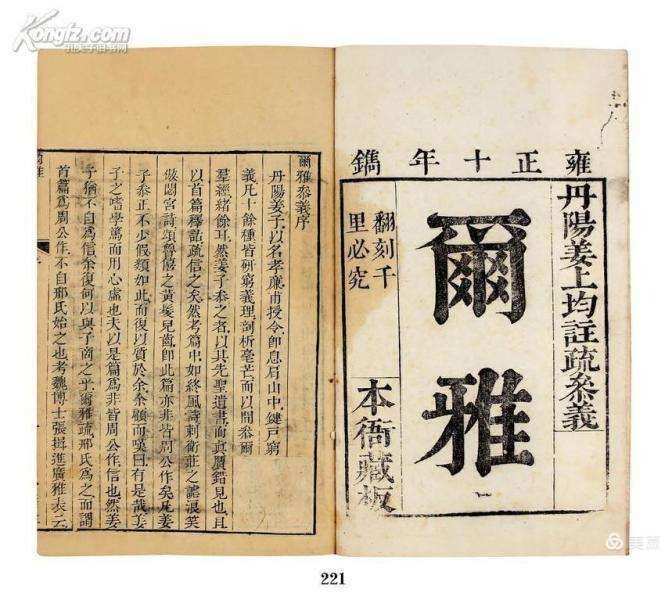 Kongfz.com
孔夫子旧书网
雍正十年鐫
丹陽姜上均註疏叅義
爾雅
翻刻千
里必究
本衙藏板
爾雅叅義序
丹陽姜子以名孝廉甫授令卽息肩山中鍵戸窮
義凡十餘種皆硏窮義理剖析毫芒而以閒叅爾
羣經緒餘耳然姜子叅之者以其先聖遺書而眞贋錯見也且
以首篇釋詁疏信之矣然考篇中如終風詩刺衛莊之謔浪笑
敖閟宮詩頌魯僖之黃髮兒齒卽此篇亦非皆周公作矣凡姜
子叅正不少假類如此而復以質於余余顧而嘆曰有是哉姜
子之嗜學篤而用心虛也夫以是篇爲非皆周公作信也然姜
子猶不自爲信余復何以與子商之乎爾雅疏邢氏爲之而謂
首篇爲周公作不自邢氏始之也考魏博士張揖進廣雅表云
美篇
221